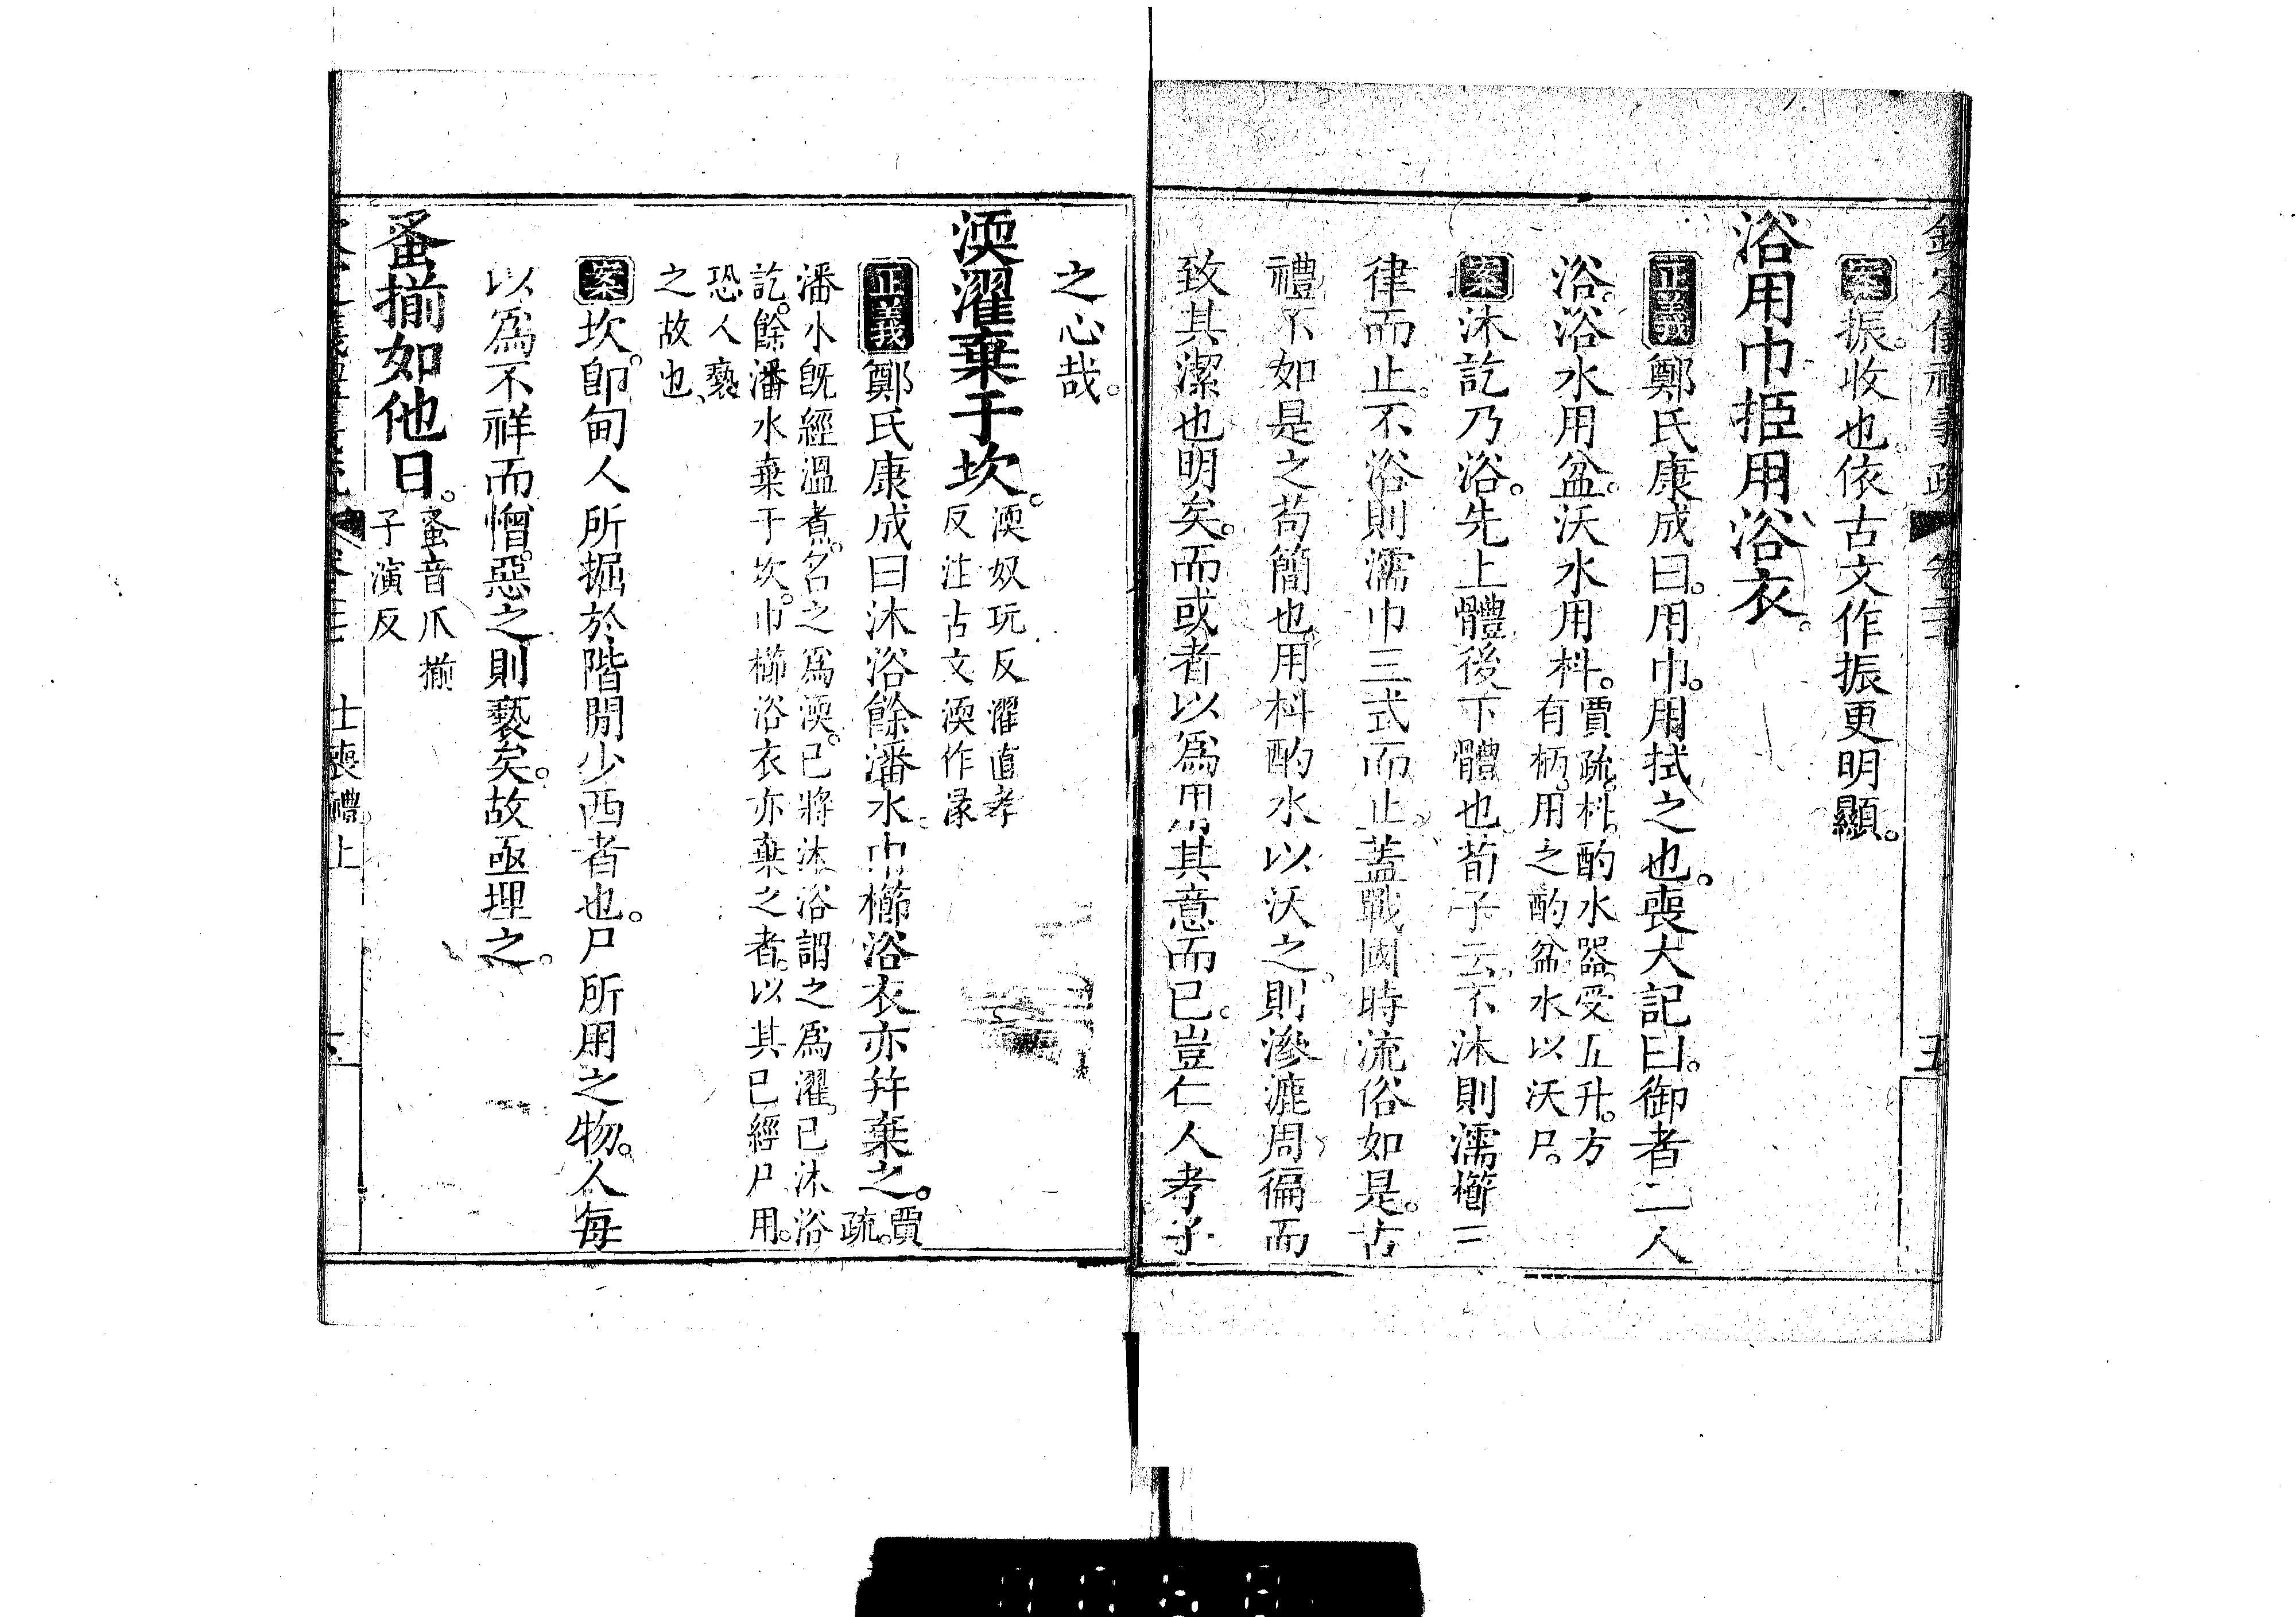 案振收也依古文作振更明顯。
浴用巾挋用浴衣。
正義鄭氏康成曰。用巾。用拭之也。喪大記曰。御者二人
浴。浴水用盆。沃水用枓。賈疏。枓。酌水器。受五升。方
有柄。用之酌盆水以沃尸。
案沐訖乃浴。先上體後下體也荀子云不沐則濡櫛三
律而止。不浴則濡巾三式而止蓋戰國時流俗如是。古
禮不如是之苟簡也用枓酌水以沃之。則滲漉周徧而
致其潔也明矣。而或者以爲用巾其意而已。豈仁人孝子
之心哉。
渜濯棄于坎。渜奴玩反濯直孝
反注古文渜作湪
正義鄭氏康成曰沐浴餘潘水巾櫛浴衣亦幷棄之。賈疏。
潘水旣經溫煮。名之爲渜。已將沐浴謂之爲濯。已沐浴
訖。餘潘水棄于坎。巾櫛浴衣亦棄之者。以其已經尸用。
恐人褻
之故也
案坎。卽甸人所掘於階閒少西者也。尸所用之物。人每
以爲不祥而憎惡之則褻矣。故亟埋之。
蚤揃如他日。蚤音爪揃
子演反
士喪禮上